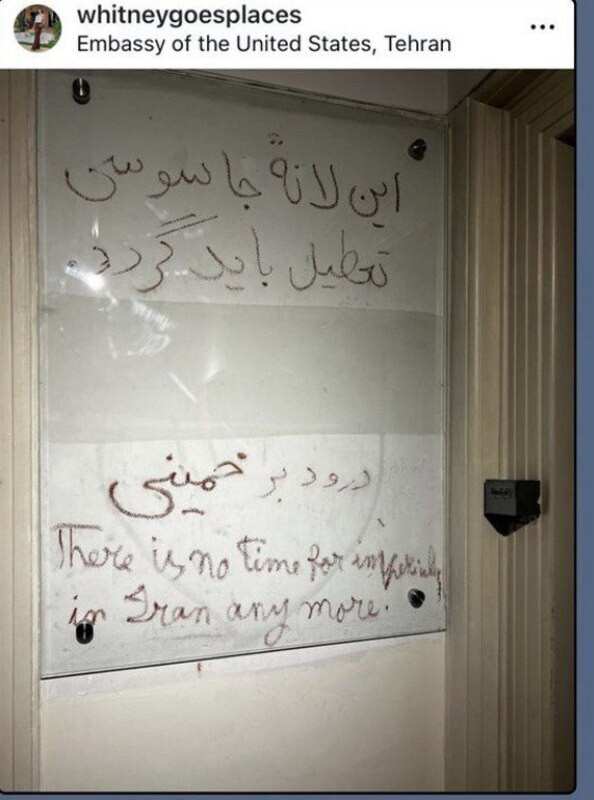 whitneygoesplaces
Embassy of the United States, Tehran
این لانهٔ جاسوسی
تعطیل باید گردد.
درود بر خمینی
There is no time for
in Iran any more.